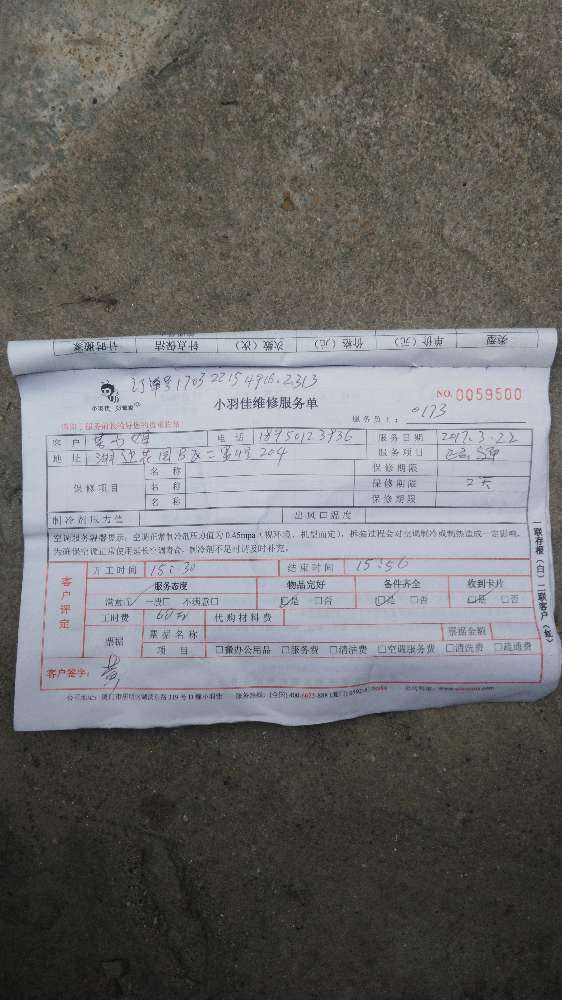 类型 单价（元） 价格（元） 次数（次） 钟点保洁 计时搬家
订单号1703 2215 4916 2313
小羽佳
小羽佳维修服务单
NO. 0059500
服务员工： 0173
客户 电话 18950123936 服务日期 2017.3.22
地址 204 服务项目
保修项目
名称 保修期限
名称 保修期限 2天
名称 保修期限
制冷剂压力值 出风口温度
空调服务温馨提示：空调正常制冷剂压力值为0.45mpa（视环境、机型而定），拆装过程会对空调制冷或制热造成一定影响，
为确保空调正常使用延长空调寿命，制冷剂不足时请及时补充。
客户评定
开工时间 15:30 结束时间 15:56
服务态度 物品完好 备件齐全 收到卡片
满意☑ 一般□ 不满意□ ☑是 □否 ☑是 □否 ☑是 □否
工时费 60元 代购材料费
票据 票据名称 票据金额
项目 □搬办公用品 □服务费 □清洁费 □空调服务费 □清洗费 □疏通费
客户签字：
联存根（白） 二联客户（红）